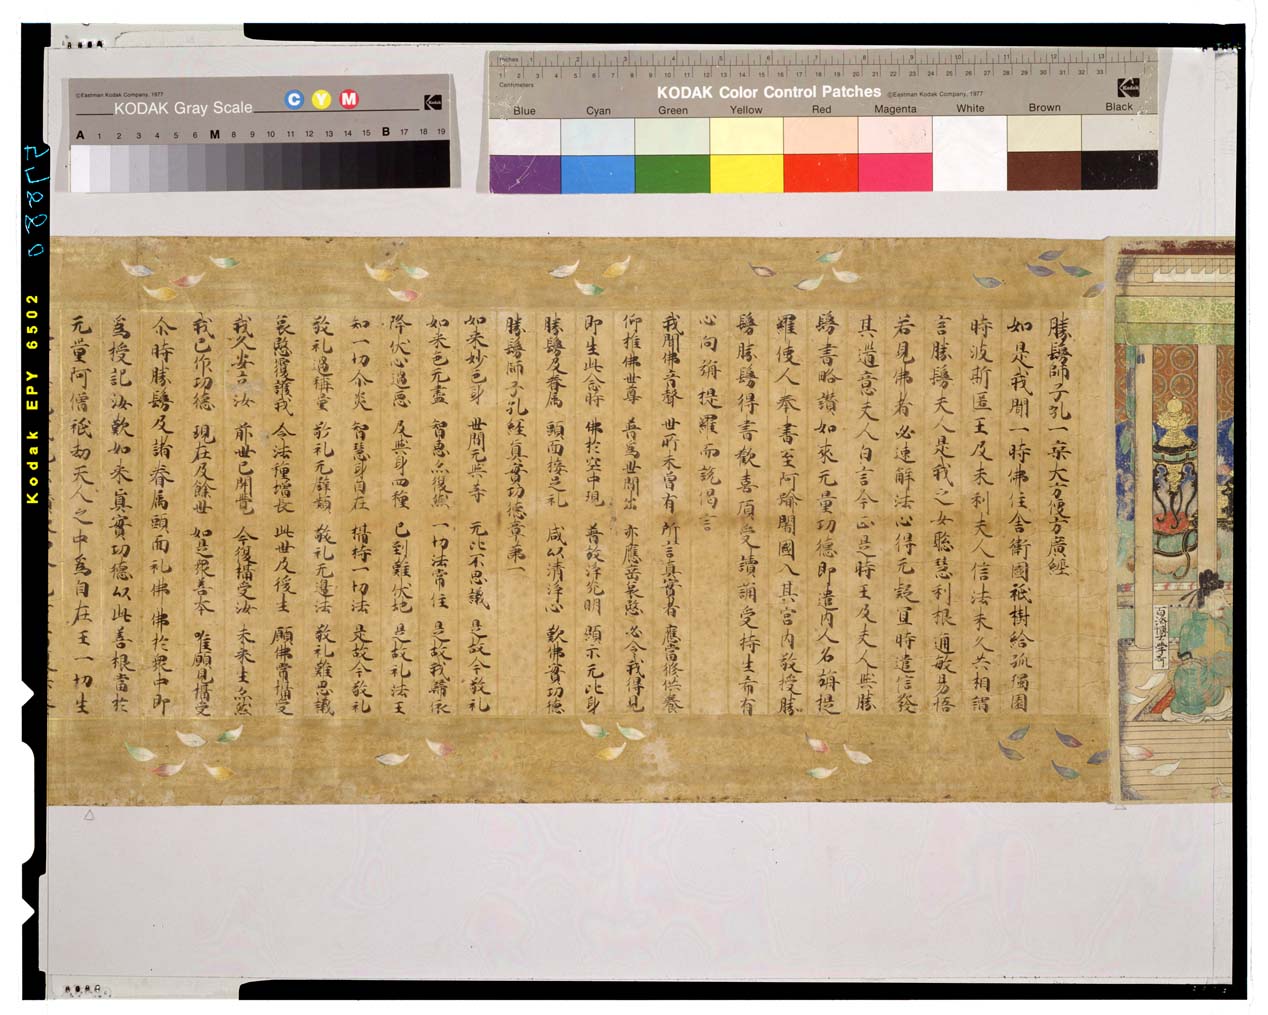 ©Eastman Kodak Company, 1977
KODAK Gray Scale
C Y M
Kodak
A 1 2 3 4 5 6 M 8 9 10 11 12 13 14 15 B 17 18 19
Inches 1 2 3 4 5 6 7 8 9 10 11 12 13
1 2 3 4 5 6 7 8 9 10 11 12 13 14 15 16 17 18 19 20 21 22 23 24 25 26 27 28 29 30 31 32 33
Centimetres
KODAK Color Control Patches ©Eastman Kodak Company, 1977
Kodak
Blue Cyan Green Yellow Red Magenta White Brown Black
Kodak EPY 6502
勝鬘師子吼一乘大方便方廣經
如是我聞一時佛住舍衛國祇樹給孤獨園
時波斯匿王及末利夫人信法未久共相謂
言勝鬘夫人是我之女聡慧利根通敏易悟
若見佛者必速解法心得无疑宜時遣信發
其道意夫人白言今正是時王及夫人與勝
鬘書略讃如來无量功德即遣内人名旃提
羅使人奉書至阿踰闍國入其宮内敬授勝
鬘勝鬘得書歡喜頂受讀誦受持生希有
心向旃提羅而說偈言
我聞佛音聲 世所未曾有 所言真實者 應當修供養
仰惟佛世尊 普為世間出 亦應垂哀愍 必令我得見
即生此念時 佛於空中現 普放淨光明 顯示无比身
勝鬘及眷属 頭面接足礼 咸以清淨心 歎佛實功德
勝鬘師子吼經真實功德章第一
如来妙色身 世間无與等 无比不思議 是故今敬礼
如来色无盡 智恵亦復然 一切法常住 是故我歸依
降伏心過惡 及與身四種 已到難伏地 是故礼法王
知一切尒炎 智慧身自在 攝持一切法 是故今敬礼
敬礼過稱量 敬礼无辟類 敬礼无邊法 敬礼難思議
哀愍覆護我 令法種增長 此世及後生 願佛常攝受
我久安立汝 前世已開覺 今復攝受汝 未来生亦然
我已作功德 現在及餘世 如是衆善本 唯願見攝受
尒時勝鬘及諸眷属頭面礼佛佛於衆中即
為授記汝歎如来真實功德以此善根當於
无量阿僧祇劫天人之中為自在王一切生